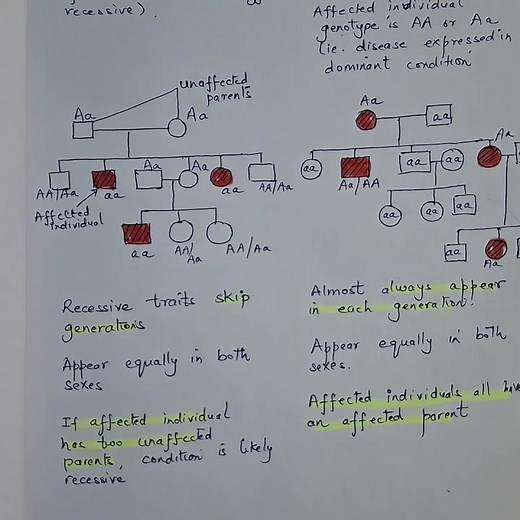 recessive).
Affected individual
genotype is AA or Aa
(ie. disease expressed in
dominant condition
unaffected
parents
Aa
Aa
Aa
Aa
AA/Aa
aa
aa
AA/Aa
Affected
individual
aa
AA/
Aa
AA/Aa
Recessive traits skip
generations
Appear equally in both
sexes
If affected individual
has two unaffected
parents, condition is likely
recessive
Aa
aa
Aa
aa
Aa/AA
aa
aa
aa
aa
aa
aa
Aa
aa
Almost always appear
in each generation!
Appear equally in both
sexes.
Affected individuals all have
an affected parent